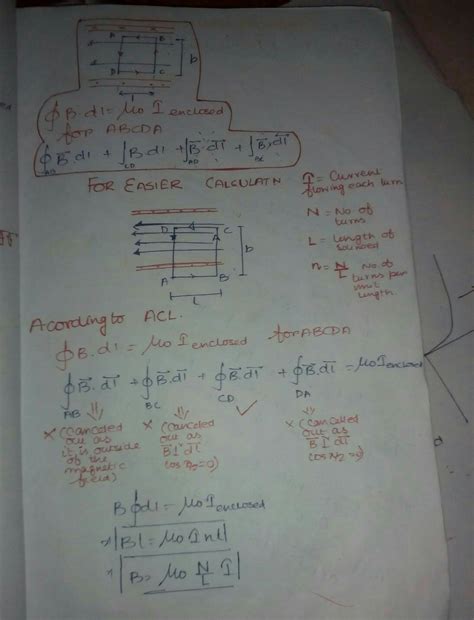 A B
b
D C
l
∮B.dl = μo I enclosed
for ABCDA
∮B.dl + ∫B.dl + ∫B.dl + ∫B.dl
AB CD AD BC
FOR EASIER CALCULATN
I = Current
flowing each turn
N = No of
turns
L = length of
n = N/L No. of
turns per
length.
D C
b
A B
L
According to ACL.
∮B.dl = μo I enclosed for ABCDA
∮B.dl + ∮B.dl + ∮B.dl + ∮B.dl = μo I enclosed
AB BC CD DA
x (Canceled
out as
it is outside
of the
magnetic
field)
x (Cancelled
out as
B⊥dl
cos π/2=0)
✓
x (Cancelled
out as
B⊥dl
cos π/2=0)
B∮dl = μo I enclosed
Bl = μo I nl
B = μo N/L I